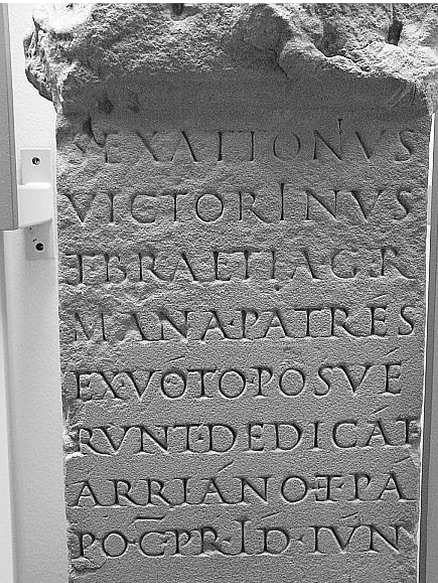 SEXATTONIVS
VICTORINVS
ETBRAETIAGER
MANA·PATRES
EX·VOTO·POSVE
RVNT·DEDICAT
ARRIANO·ET·PA
PO·C·PR·ID·IVN